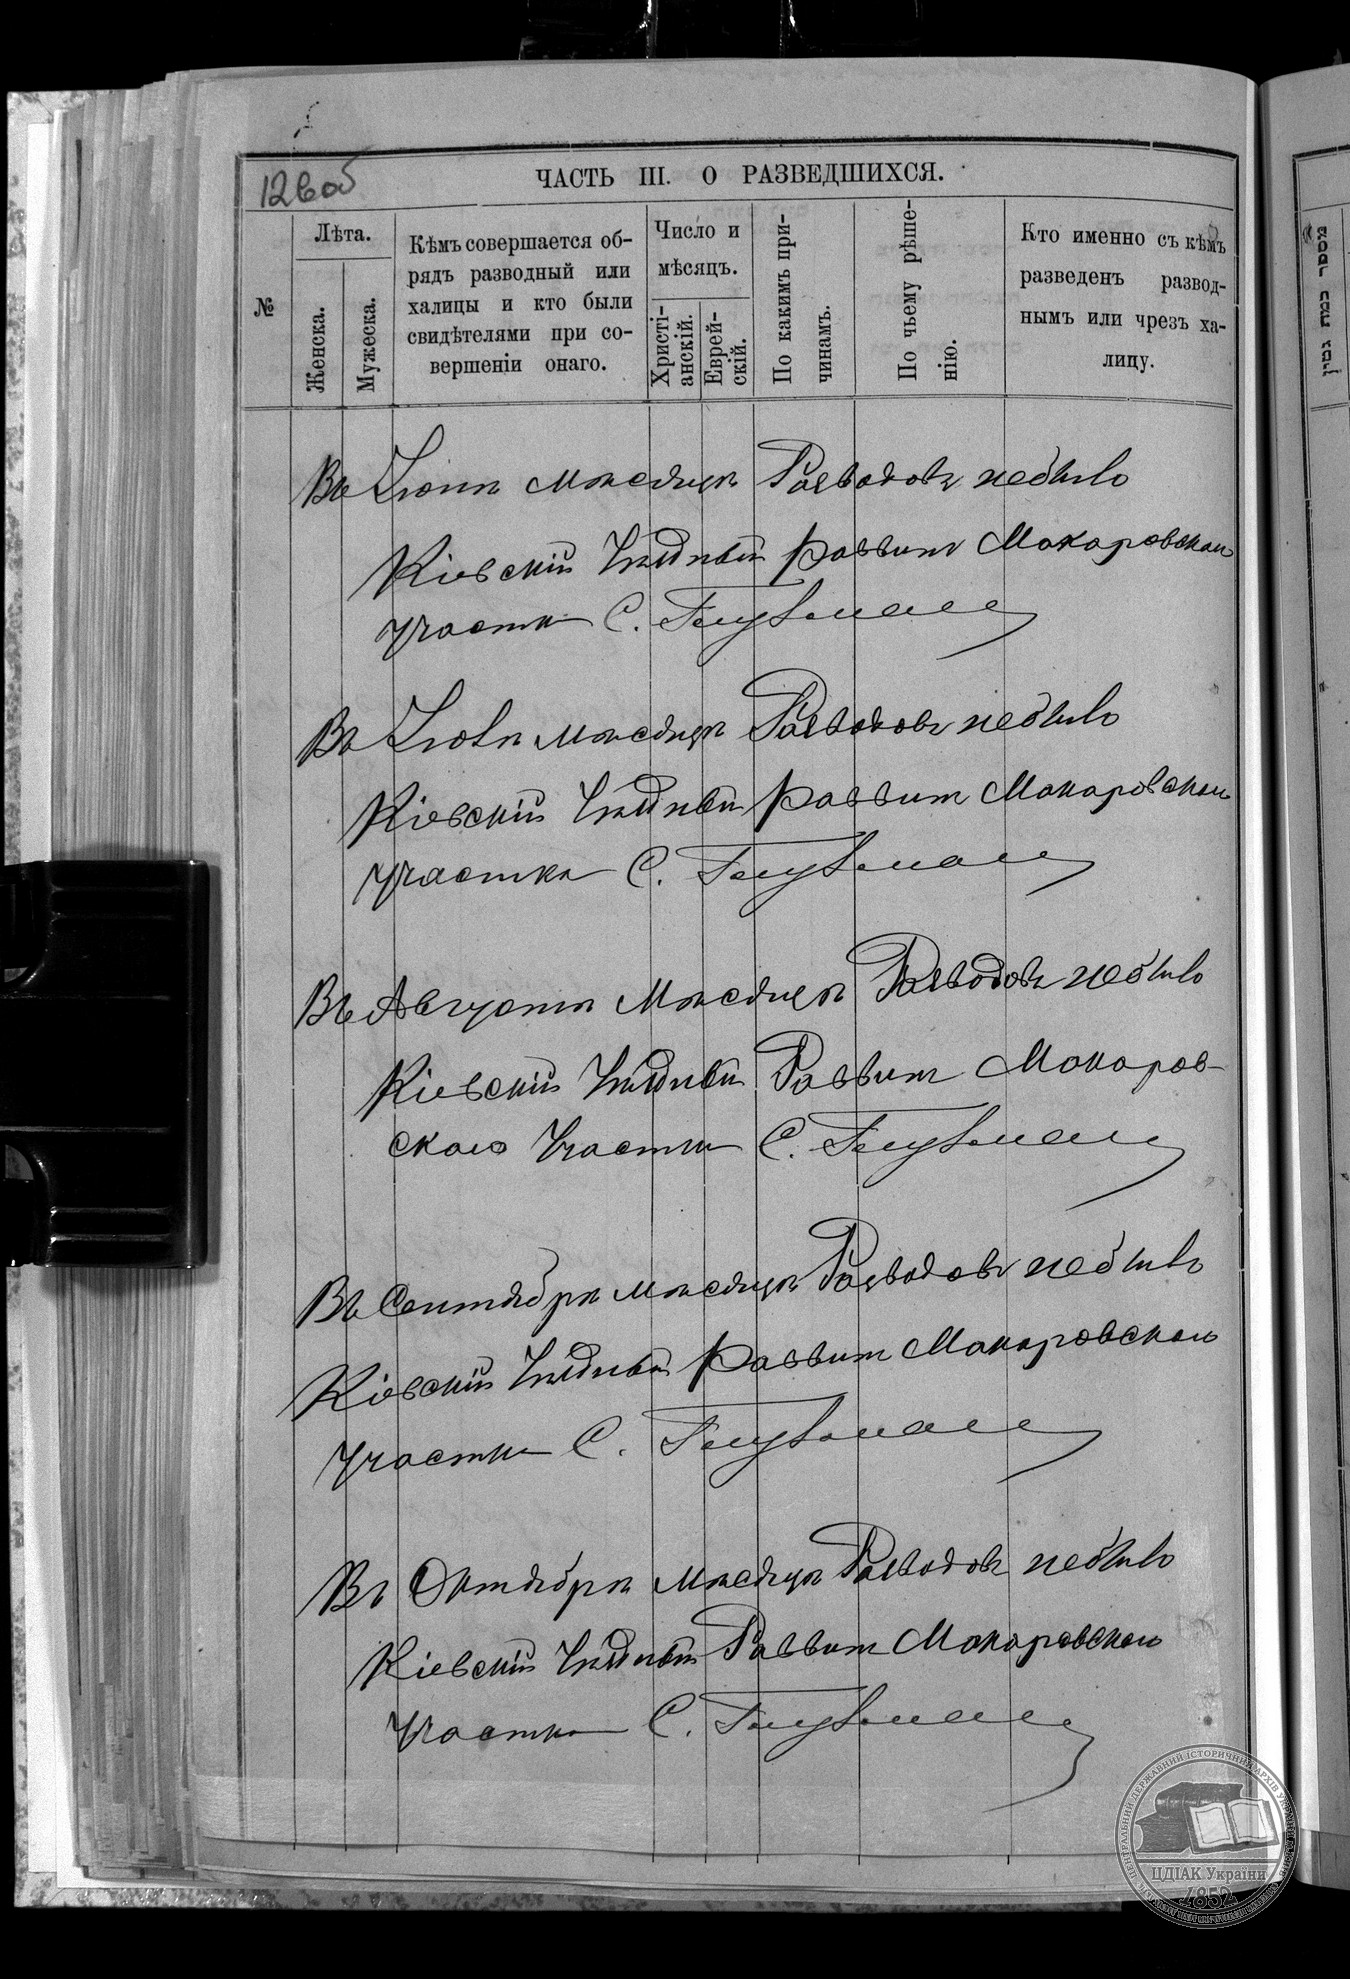 126об
ЧАСТЬ III. О РАЗВЕДШИХСЯ.
№
Лѣта.
Женска.
Мужеска.
Кѣмъ совершается об-
рядъ разводный или
халицы и кто были
свидѣтелями при со-
вершеніи онаго.
Число и
мѣсяцъ.
Христі-
анскій.
Еврей-
скій.
По какимъ при-
чинамъ.
По чьему рѣше-
нію.
Кто именно съ кѣмъ
разведенъ развод-
нымъ или чрезъ ха-
лицу.
Въ Іюнѣ мѣсяцѣ Разводовъ небыло
Кіевскій Уѣздный раввинъ Макаровскаго
участка С.
Въ Іюлѣ мѣсяцѣ Разводовъ небыло
Кіевскій Уѣздный раввинъ Макаровскаго
участка С.
Въ Августѣ Мѣсяцѣ Разводовъ небыло
Кіевскій Уѣздный Раввинъ Макаров-
скаго Участка С.
Въ Сентябрѣ мѣсяцѣ Разводовъ небыло
Кіевскій Уѣздный раввинъ Макаровскаго
участка С.
Въ Октябрѣ мѣсяцѣ Разводовъ небыло
Кіевскій Уѣздный Раввинъ Макаровскаго
Участка С.
מספר כמת גטין
ЦЕНТРАЛЬНИЙ ДЕРЖАВНИЙ ІСТОРИЧНИЙ АРХІВ УКРАЇНИ
ЦДІАК України
1852